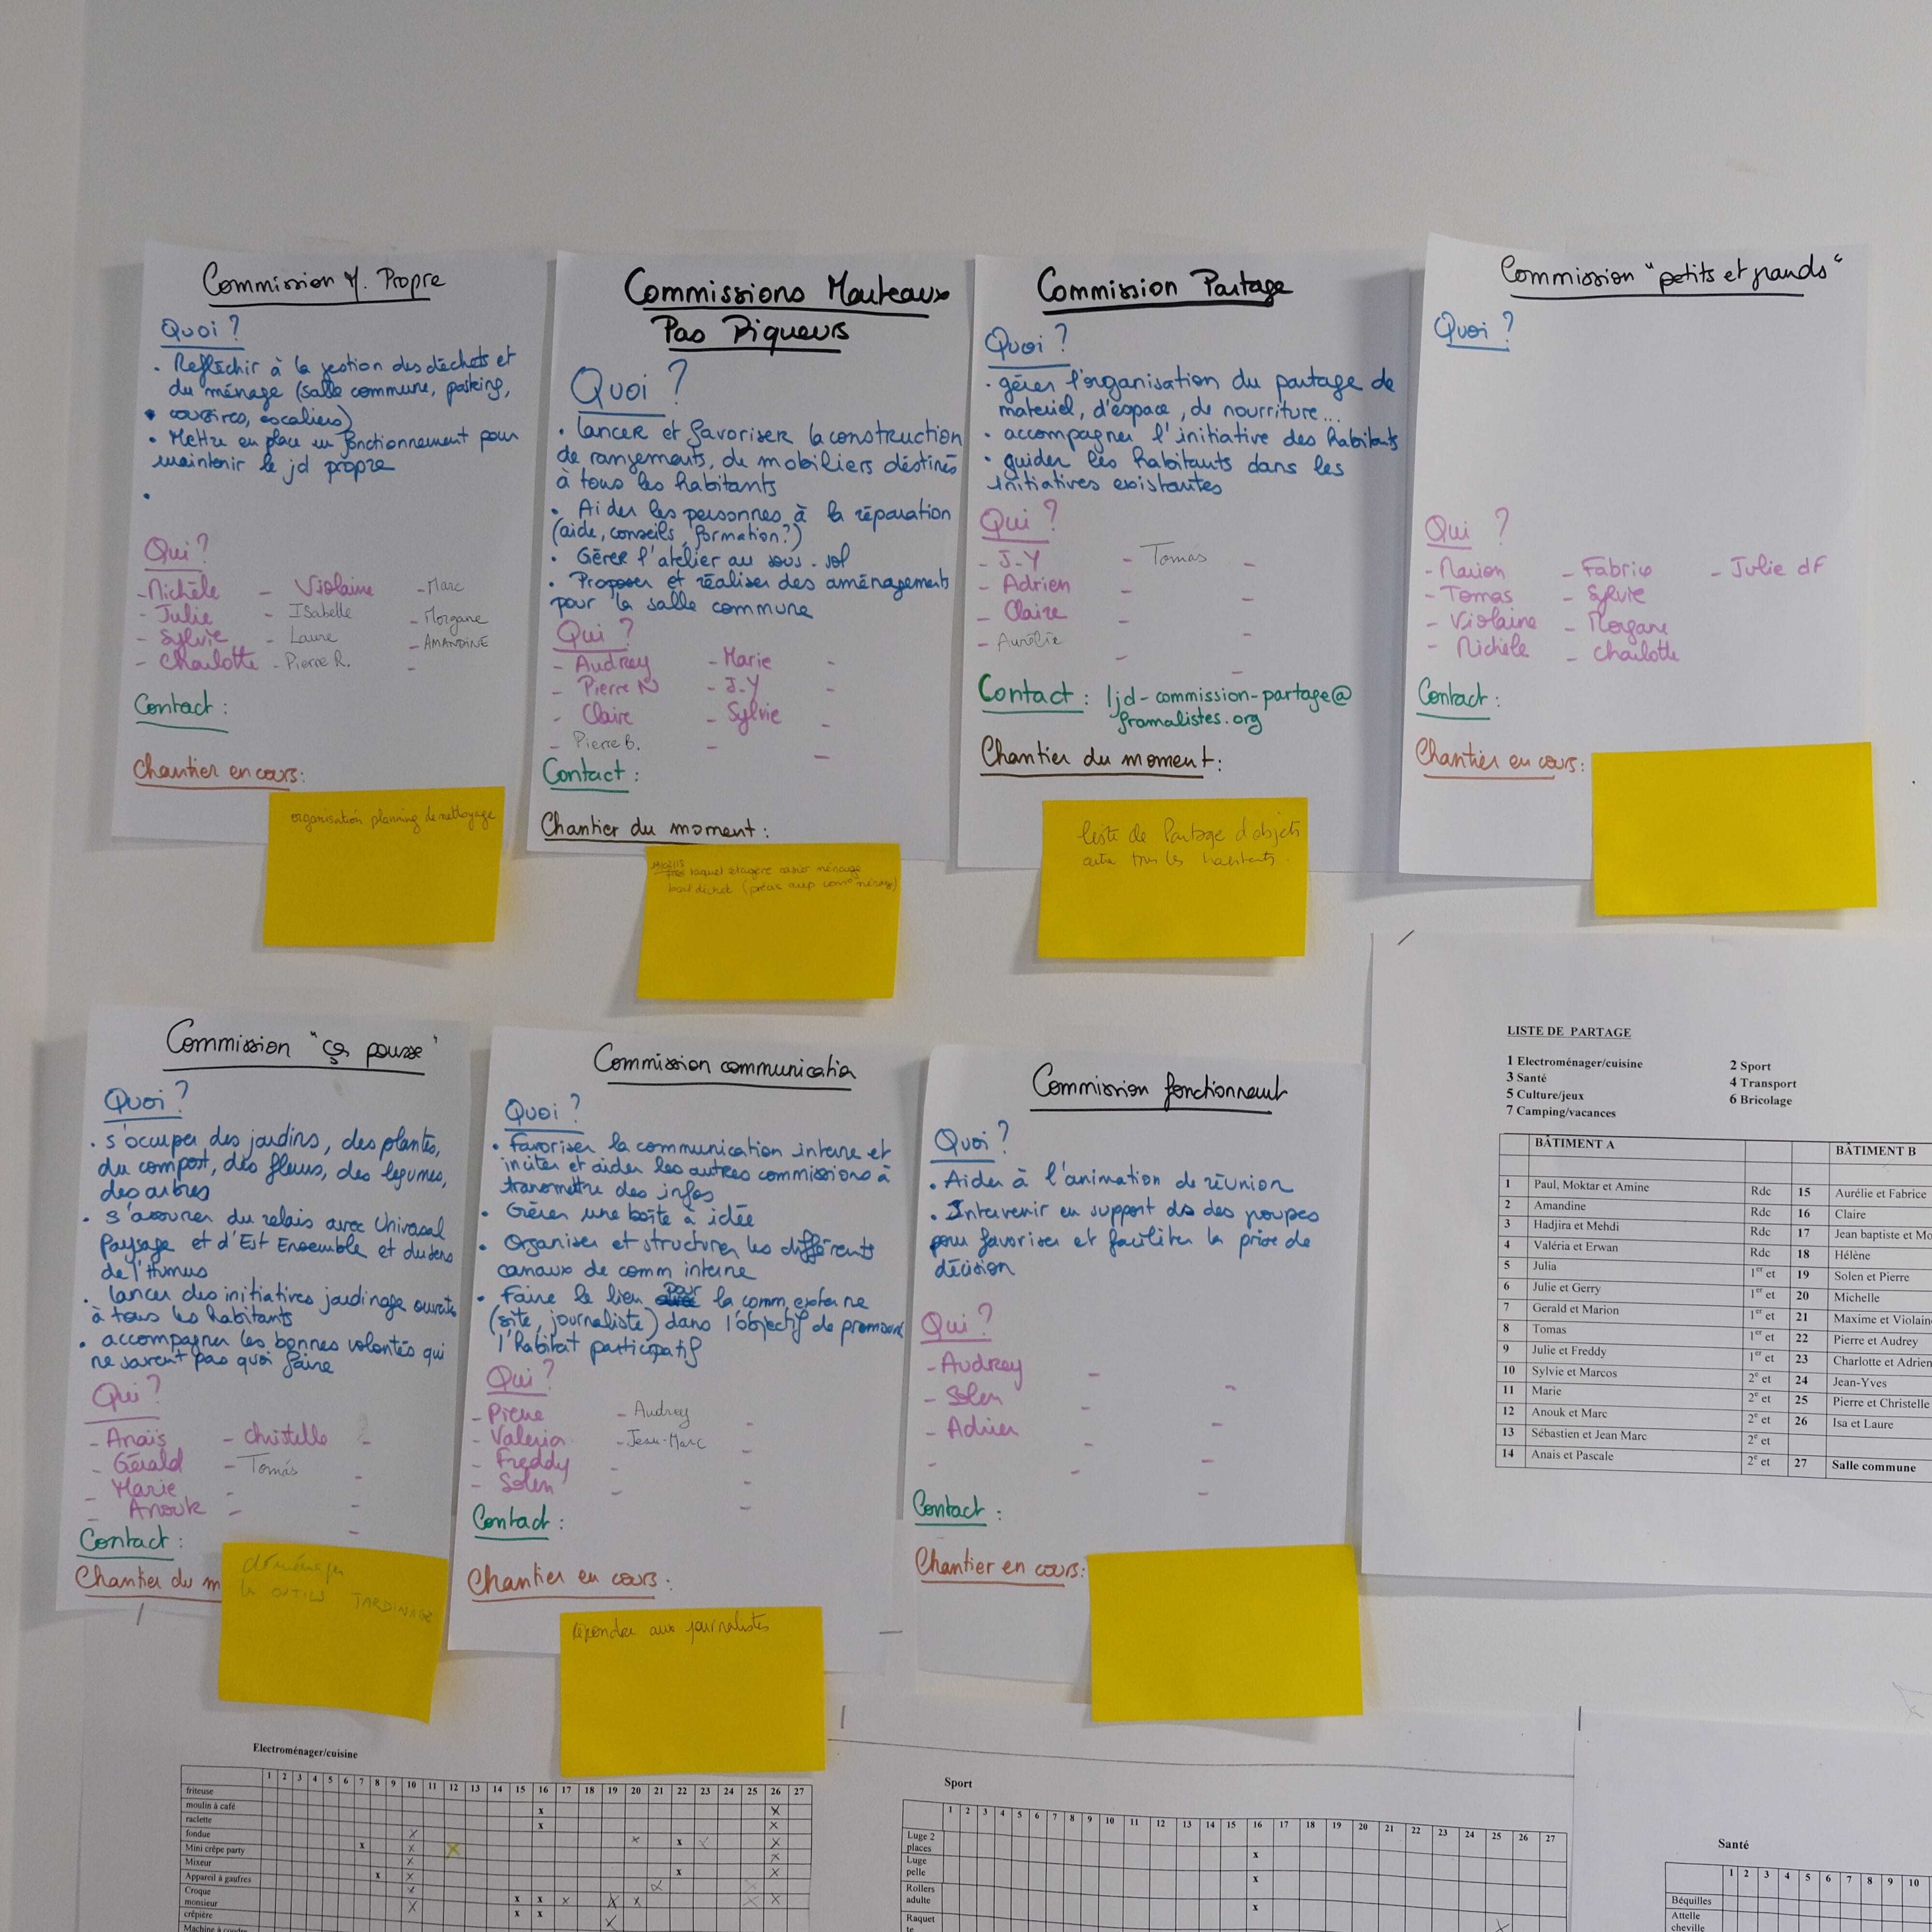 Commission M. Propre
Quoi ?
• Refléchir à la gestion des déchets et
du ménage (salle commune, parking,
• coursives, escaliers)
• Mettre en place un fonctionnement pour
maintenir le jd propre
•
Qui ?
- Michèle - Violaine - Marc
- Julie - Isabelle - Morgane
- Sylvie - Laure - AMANDINE
- Charlotte - Pierre R. -
Contact :
Chantier en cours :
organisation planning de nettoyage
Commissions Marteaux
Pas Piqueurs
Quoi ?
• lancer et favoriser la construction
de rangements, de mobiliers déstinés
à tous les habitants
• Aider les personnes à la réparation
(aide, conseils, formation?)
• Gérer l'atelier au sous-sol
• Proposer et réaliser des aménagements
pour la salle commune
Qui ?
- Audrey - Marie -
- Pierre N - J.Y -
- Claire - Sylvie -
- Pierre B. - -
Contact :
Chantier du moment :
étagère ménage
local déchet
Commission Partage
Quoi ?
• gérer l'organisation du partage de
materiel, d'espace, de nourriture...
• accompagner l'initiative des habitants
• guider les habitants dans les
initiatives existantes
Qui ?
- J.Y - Tomás -
- Adrien - -
- Claire - -
- Aurélie - -
Contact : ljd-commission-partage@
framalistes.org
Chantier du moment :
liste de Partage d'objets
entre tous les habitants.
Commission "petits et grands"
Quoi ?
Qui ?
- Marion - Fabrice - Julie dF
- Tomas - Sylvie
- Violaine - Morgane
- Michèle - Charlotte
Contact :
Chantier en cours :
Commission "ça pousse"
Quoi ?
• s'occuper des jardins, des plantes,
du compost, des fleurs, des legumes,
des arbres
• s'assurer du relais avec Univasal
Paysage et d'Est Ensemble et du sens
de l'humus
• lancer des initiatives jardinage ouvertes
à tous les habitants
• accompagner les bonnes volontés qui
ne savent pas quoi faire
Qui ?
- Anaïs - Christelle -
- Gérald - Tomás -
- Marie - -
- Anouk - -
Contact :
Chantier du m
déménager
les OUTILS JARDINAGE
Commission communication
Quoi ?
• Favoriser la communication interne et
inciter et aider les autres commissions à
transmettre des infos
• Gérer une boîte à idée
• Organiser et structurer les différents
canaux de comm interne
• Faire le lien pour la comm externe
(site, journaliste) dans l'objectif de promouvoir
l'habitat participatif
Qui ?
- Pierre - Audrey -
- Valeria - Jean-Marc -
- Freddy - -
- Solen - -
Contact :
Chantier en cours :
répondre aux journalistes
Commission fonctionnement
Quoi ?
• Aider à l'animation de réunion
• Intervenir en support ds des groupes
pour favoriser et faciliter la prise de
décision
Qui ?
- Audrey - -
- Solen - -
- Adrien - -
- - -
Contact :
Chantier en cours :
LISTE DE PARTAGE
1 Electroménager/cuisine 2 Sport
3 Santé 4 Transport
5 Culture/jeux 6 Bricolage
7 Camping/vacances
BÂTIMENT A BÂTIMENT B
1 Paul, Moktar et Amine Rdc 15 Aurélie et Fabrice
2 Amandine Rdc 16 Claire
3 Hadjira et Mehdi Rdc 17 Jean baptiste et Mo
4 Valéria et Erwan Rdc 18 Hélène
5 Julia 1er et 19 Solen et Pierre
6 Julie et Gerry 1er et 20 Michelle
7 Gerald et Marion 1er et 21 Maxime et Violain
8 Tomas 1er et 22 Pierre et Audrey
9 Julie et Freddy 1er et 23 Charlotte et Adrien
10 Sylvie et Marcos 2e et 24 Jean-Yves
11 Marie 2e et 25 Pierre et Christelle
12 Anouk et Marc 2e et 26 Isa et Laure
13 Sébastien et Jean Marc 2e et
14 Anais et Pascale 2e et 27 Salle commune
Electroménager/cuisine
1 2 3 4 5 6 7 8 9 10 11 12 13 14 15 16 17 18 19 20 21 22 23 24 25 26 27
friteuse
moulin à café x x
raclette x x
fondue x
Mini crêpe party x x x x x x x
Mixeur x x
Appareil à gaufres x x x x
Croque x x
monsieur x x x x x x x x
crêpière x x x
Machine à coudre
Sport
1 2 3 4 5 6 7 8 9 10 11 12 13 14 15 16 17 18 19 20 21 22 23 24 25 26 27
Luge 2
places x
Luge
pelle x
Rollers
adulte x
Raquet x
te
Santé
1 2 3 4 5 6 7 8 9 10
Béquilles
Attelle
cheville